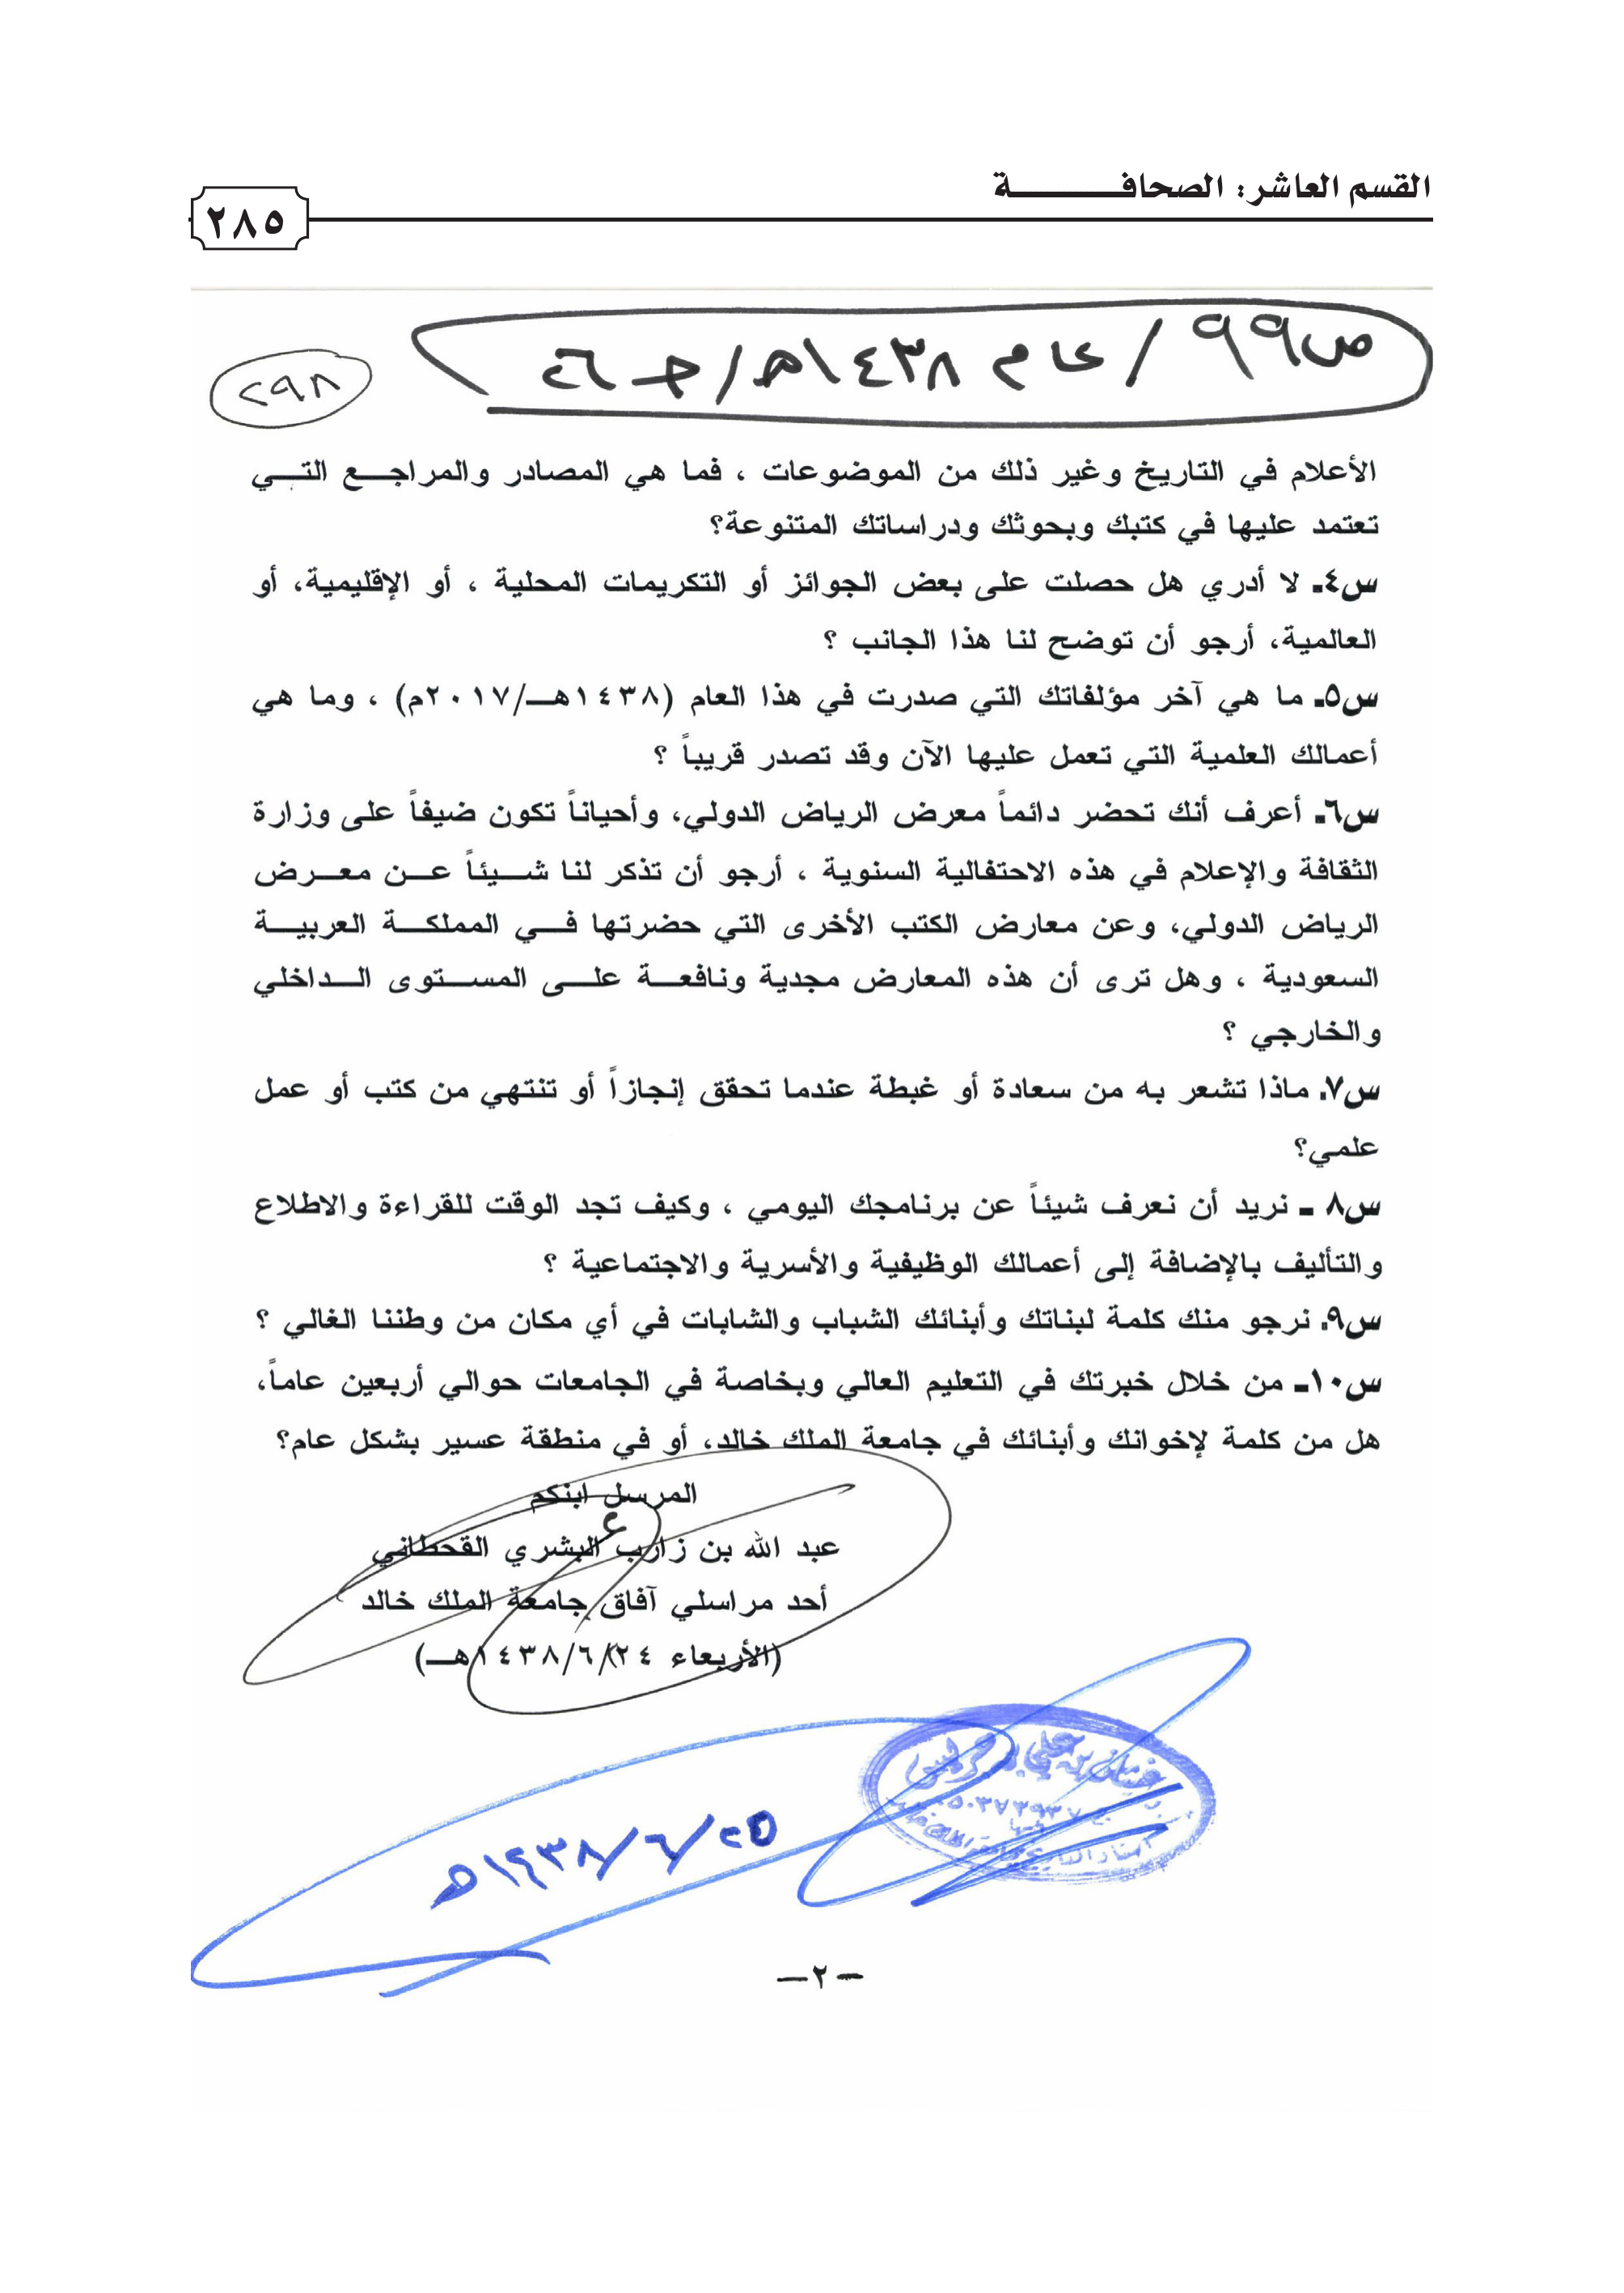 القسم العاشر: الصحافة
٢٨٥
ص٩٩/ عام ١٤٣٨هـ/ جـ ٢٦
٢٩٨
الأعلام في التاريخ وغير ذلك من الموضوعات ، فما هي المصادر والمراجع التي
تعتمد عليها في كتبك وبحوثك ودراساتك المتنوعة؟
س٤ـ لا أدري هل حصلت على بعض الجوائز أو التكريمات المحلية ، أو الإقليمية، أو
العالمية، أرجو أن توضح لنا هذا الجانب ؟
س٥ـ ما هي آخر مؤلفاتك التي صدرت في هذا العام (١٤٣٨هـ/٢٠١٧م) ، وما هي
أعمالك العلمية التي تعمل عليها الآن وقد تصدر قريباً ؟
س٦ـ أعرف أنك تحضر دائماً معرض الرياض الدولي، وأحياناً تكون ضيفاً على وزارة
الثقافة والإعلام في هذه الاحتفالية السنوية ، أرجو أن تذكر لنا شيئاً عن معرض
الرياض الدولي، وعن معارض الكتب الأخرى التي حضرتها في المملكة العربية
السعودية ، وهل ترى أن هذه المعارض مجدية ونافعة على المستوى الداخلي
والخارجي ؟
س٧. ماذا تشعر به من سعادة أو غبطة عندما تحقق إنجازاً أو تنتهي من كتب أو عمل
علمي؟
س٨ ـ نريد أن نعرف شيئاً عن برنامجك اليومي ، وكيف تجد الوقت للقراءة والاطلاع
والتأليف بالإضافة إلى أعمالك الوظيفية والأسرية والاجتماعية ؟
س٩. نرجو منك كلمة لبناتك وأبنائك الشباب والشابات في أي مكان من وطننا الغالي ؟
س١٠ـ من خلال خبرتك في التعليم العالي وبخاصة في الجامعات حوالي أربعين عاماً،
هل من كلمة لإخوانك وأبنائك في جامعة الملك خالد، أو في منطقة عسير بشكل عام؟
المرسل ابنكم
عبد الله بن زارب البشري القحطاني
أحد مراسلي آفاق جامعة الملك خالد
(الأربعاء ١٤٣٨/٦/٢٤هـ)
غيثان بن علي بن جريس
١٤٣٨/٦/٢٥هـ
ـ٢ـ